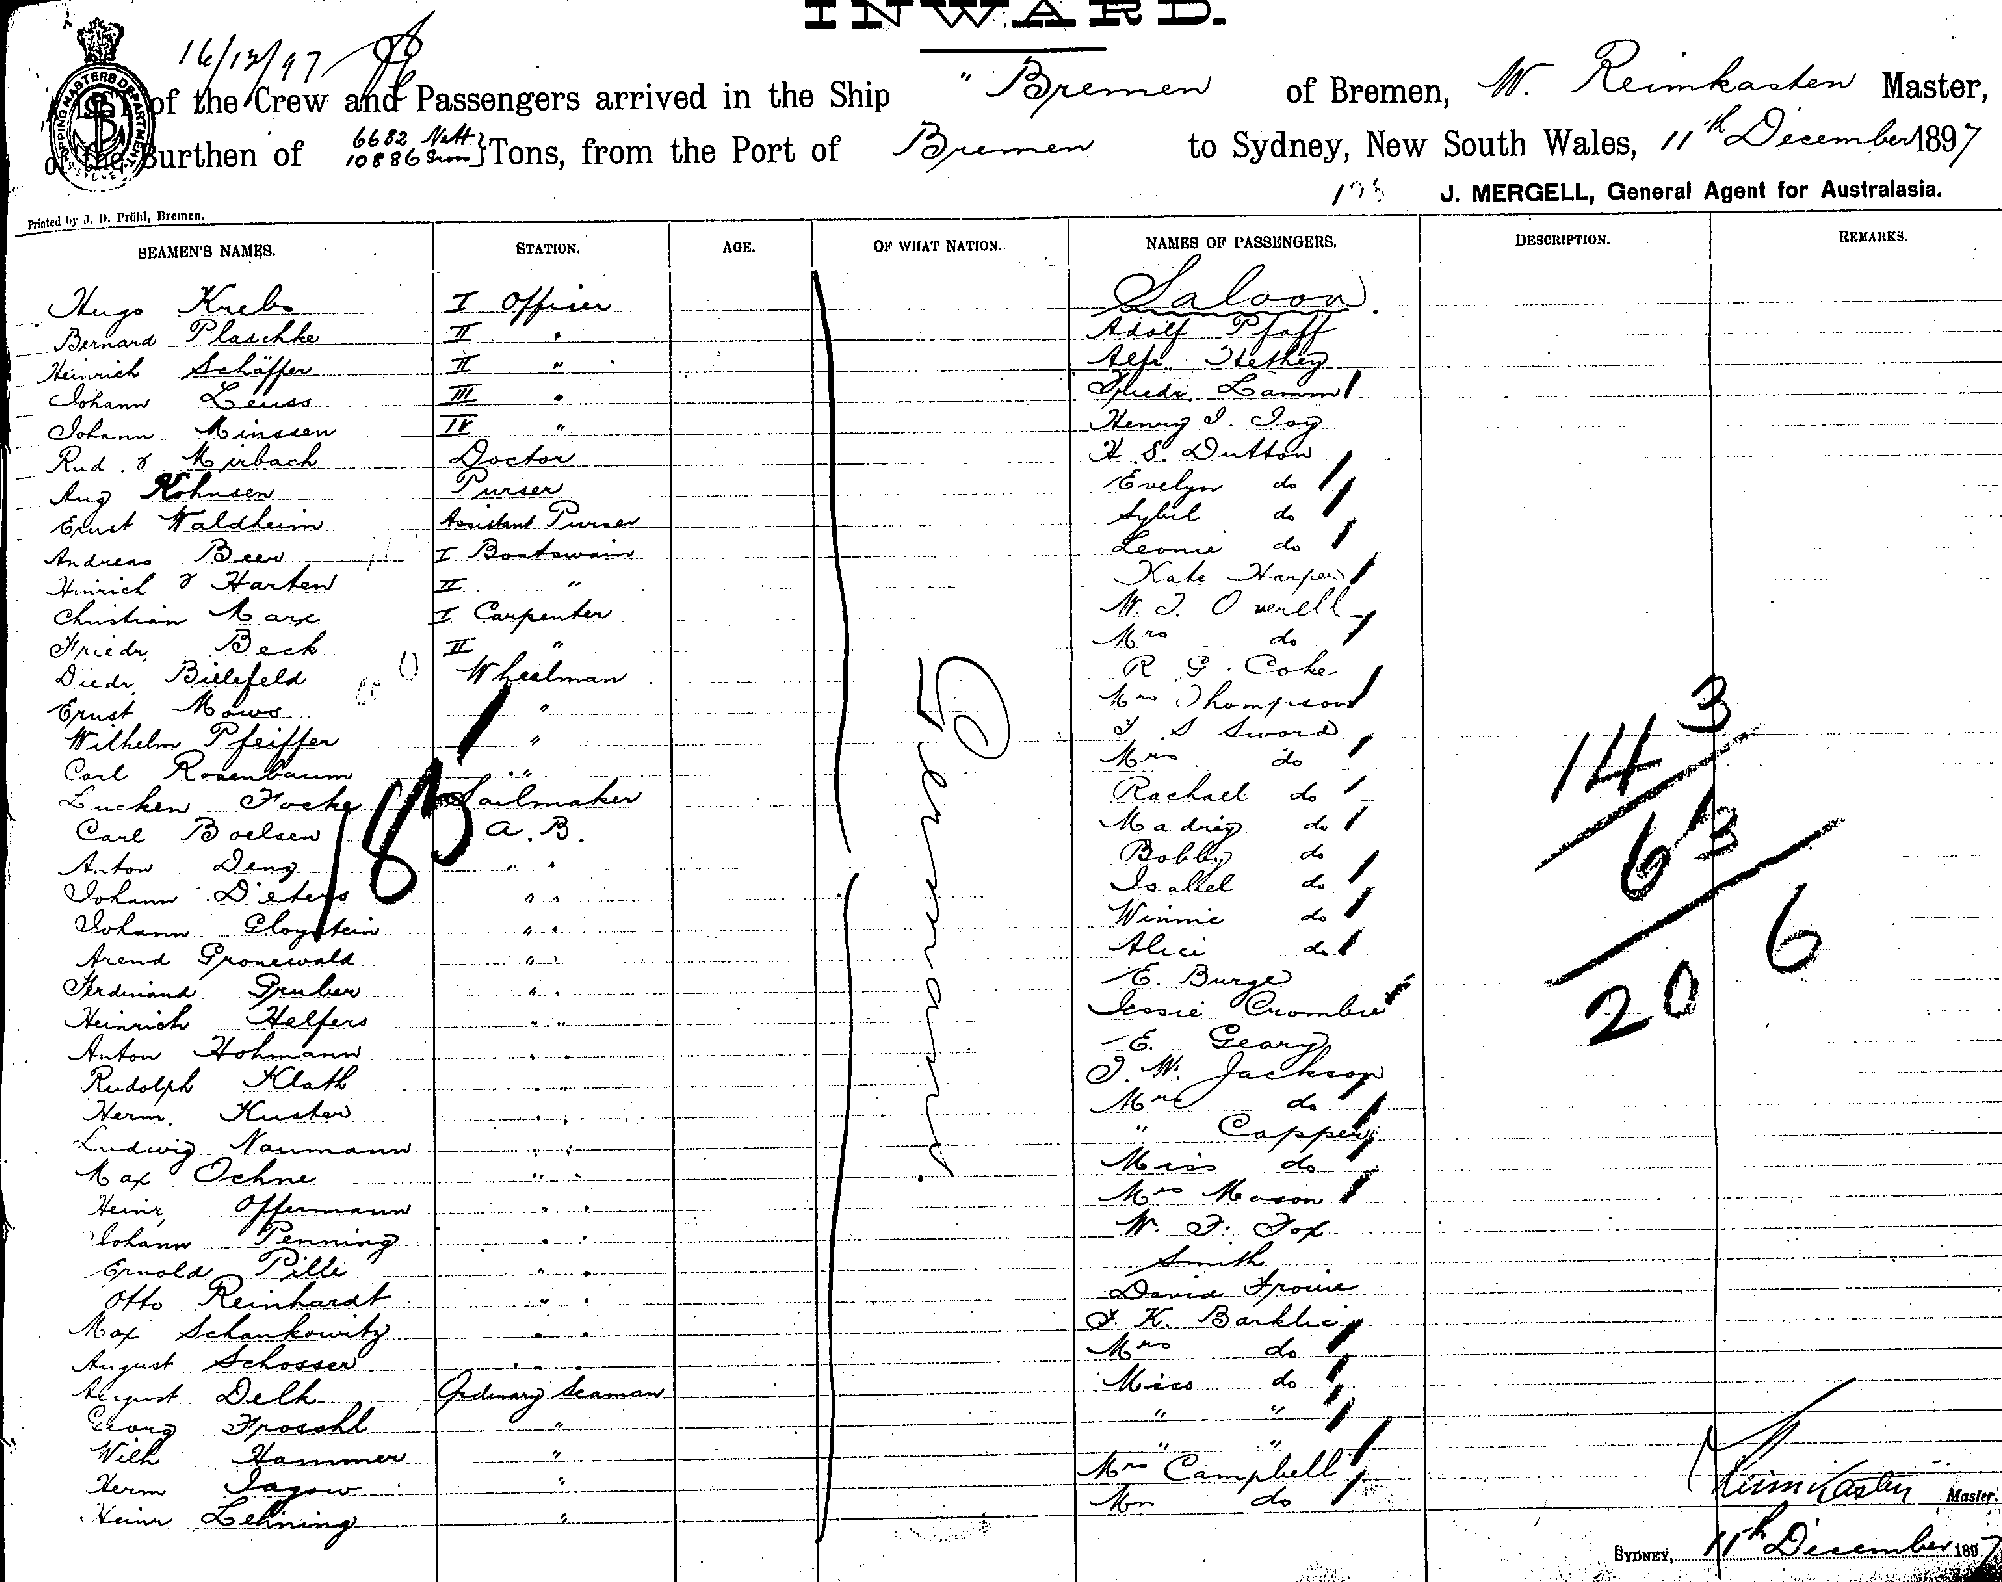 INWARD.
16/12/97
List of the Crew and Passengers arrived in the Ship "Bremen of Bremen, W. Reimkasten Master,
of the Burthen of 6682 Nett 10886 Gross } Tons, from the Port of Bremen to Sydney, New South Wales, 11th December 1897
J. MERGELL, General Agent for Australasia.
Printed by J. D. Prühl, Bremen.
SEAMEN'S NAMES. STATION. AGE. OF WHAT NATION. NAMES OF PASSENGERS. DESCRIPTION. REMARKS.
Hugo Krebs I Officer Saloon.
Bernard Plaschke II " Adolf Pfaff
Heinrich Schäffer II " Alfr.
Johann Leuss III " Friedr. Lamm
Johann Minssen IV " Henry I. Joy
Rud. v Mirbach Doctor H. S. Dutton
Aug Kohnsen Purser Evelyn do
Ernst Waldheim Assistant Purser Sybil do
Andreas Beer I Boatswain Leonie do
Hinrich v Harten II " Kate Harper
Christian Marx I Carpenter W. J. Overell
Friedr. Beck II " Mrs do
Diedr. Bielefeld Wheelman R. G. Coke
Ernst Mows " Mrs Thompson
Wilhelm Pfeiffer " T S Sword
Carl Rosenbaum " Mrs do
Lucken Focke Sailmaker Rachael do
Carl Boelsen A. B. do
Anton Deng " " Bobby do
Johann Dieters " " Isabel do
Johann Gloystein " " Winnie do
Arend Gronewald " " Alice do
Ferdinand Gruber " " E. Burge
Heinrich Helfers " " Jessie Crombie
Anton Hohmann " " E. Geary
Rudolph Klath " " J. W. Jackson
Herm. Kuster " " Mrs do
Ludwig Naumann " " " Capper
Max Oehne " " Miss do
Heinr. Offermann " " Mrs Mason
Johann Penning " " W. F. Fox
Ernold Pille " " Smith
Otto Reinhardt " " David
Max Schankowitz " " J. K. Barklie
August Schosser " " Mrs do
August Delh Ordinary Seaman Miss do
Georg Froschl " " "
Wilh Hammer " " "
Herm Jagow " Mrs Campbell
Heinr Lehning " do
Germany
183
143
63
20 6
W. Reimkasten Master.
SYDNEY, 11th December 1897